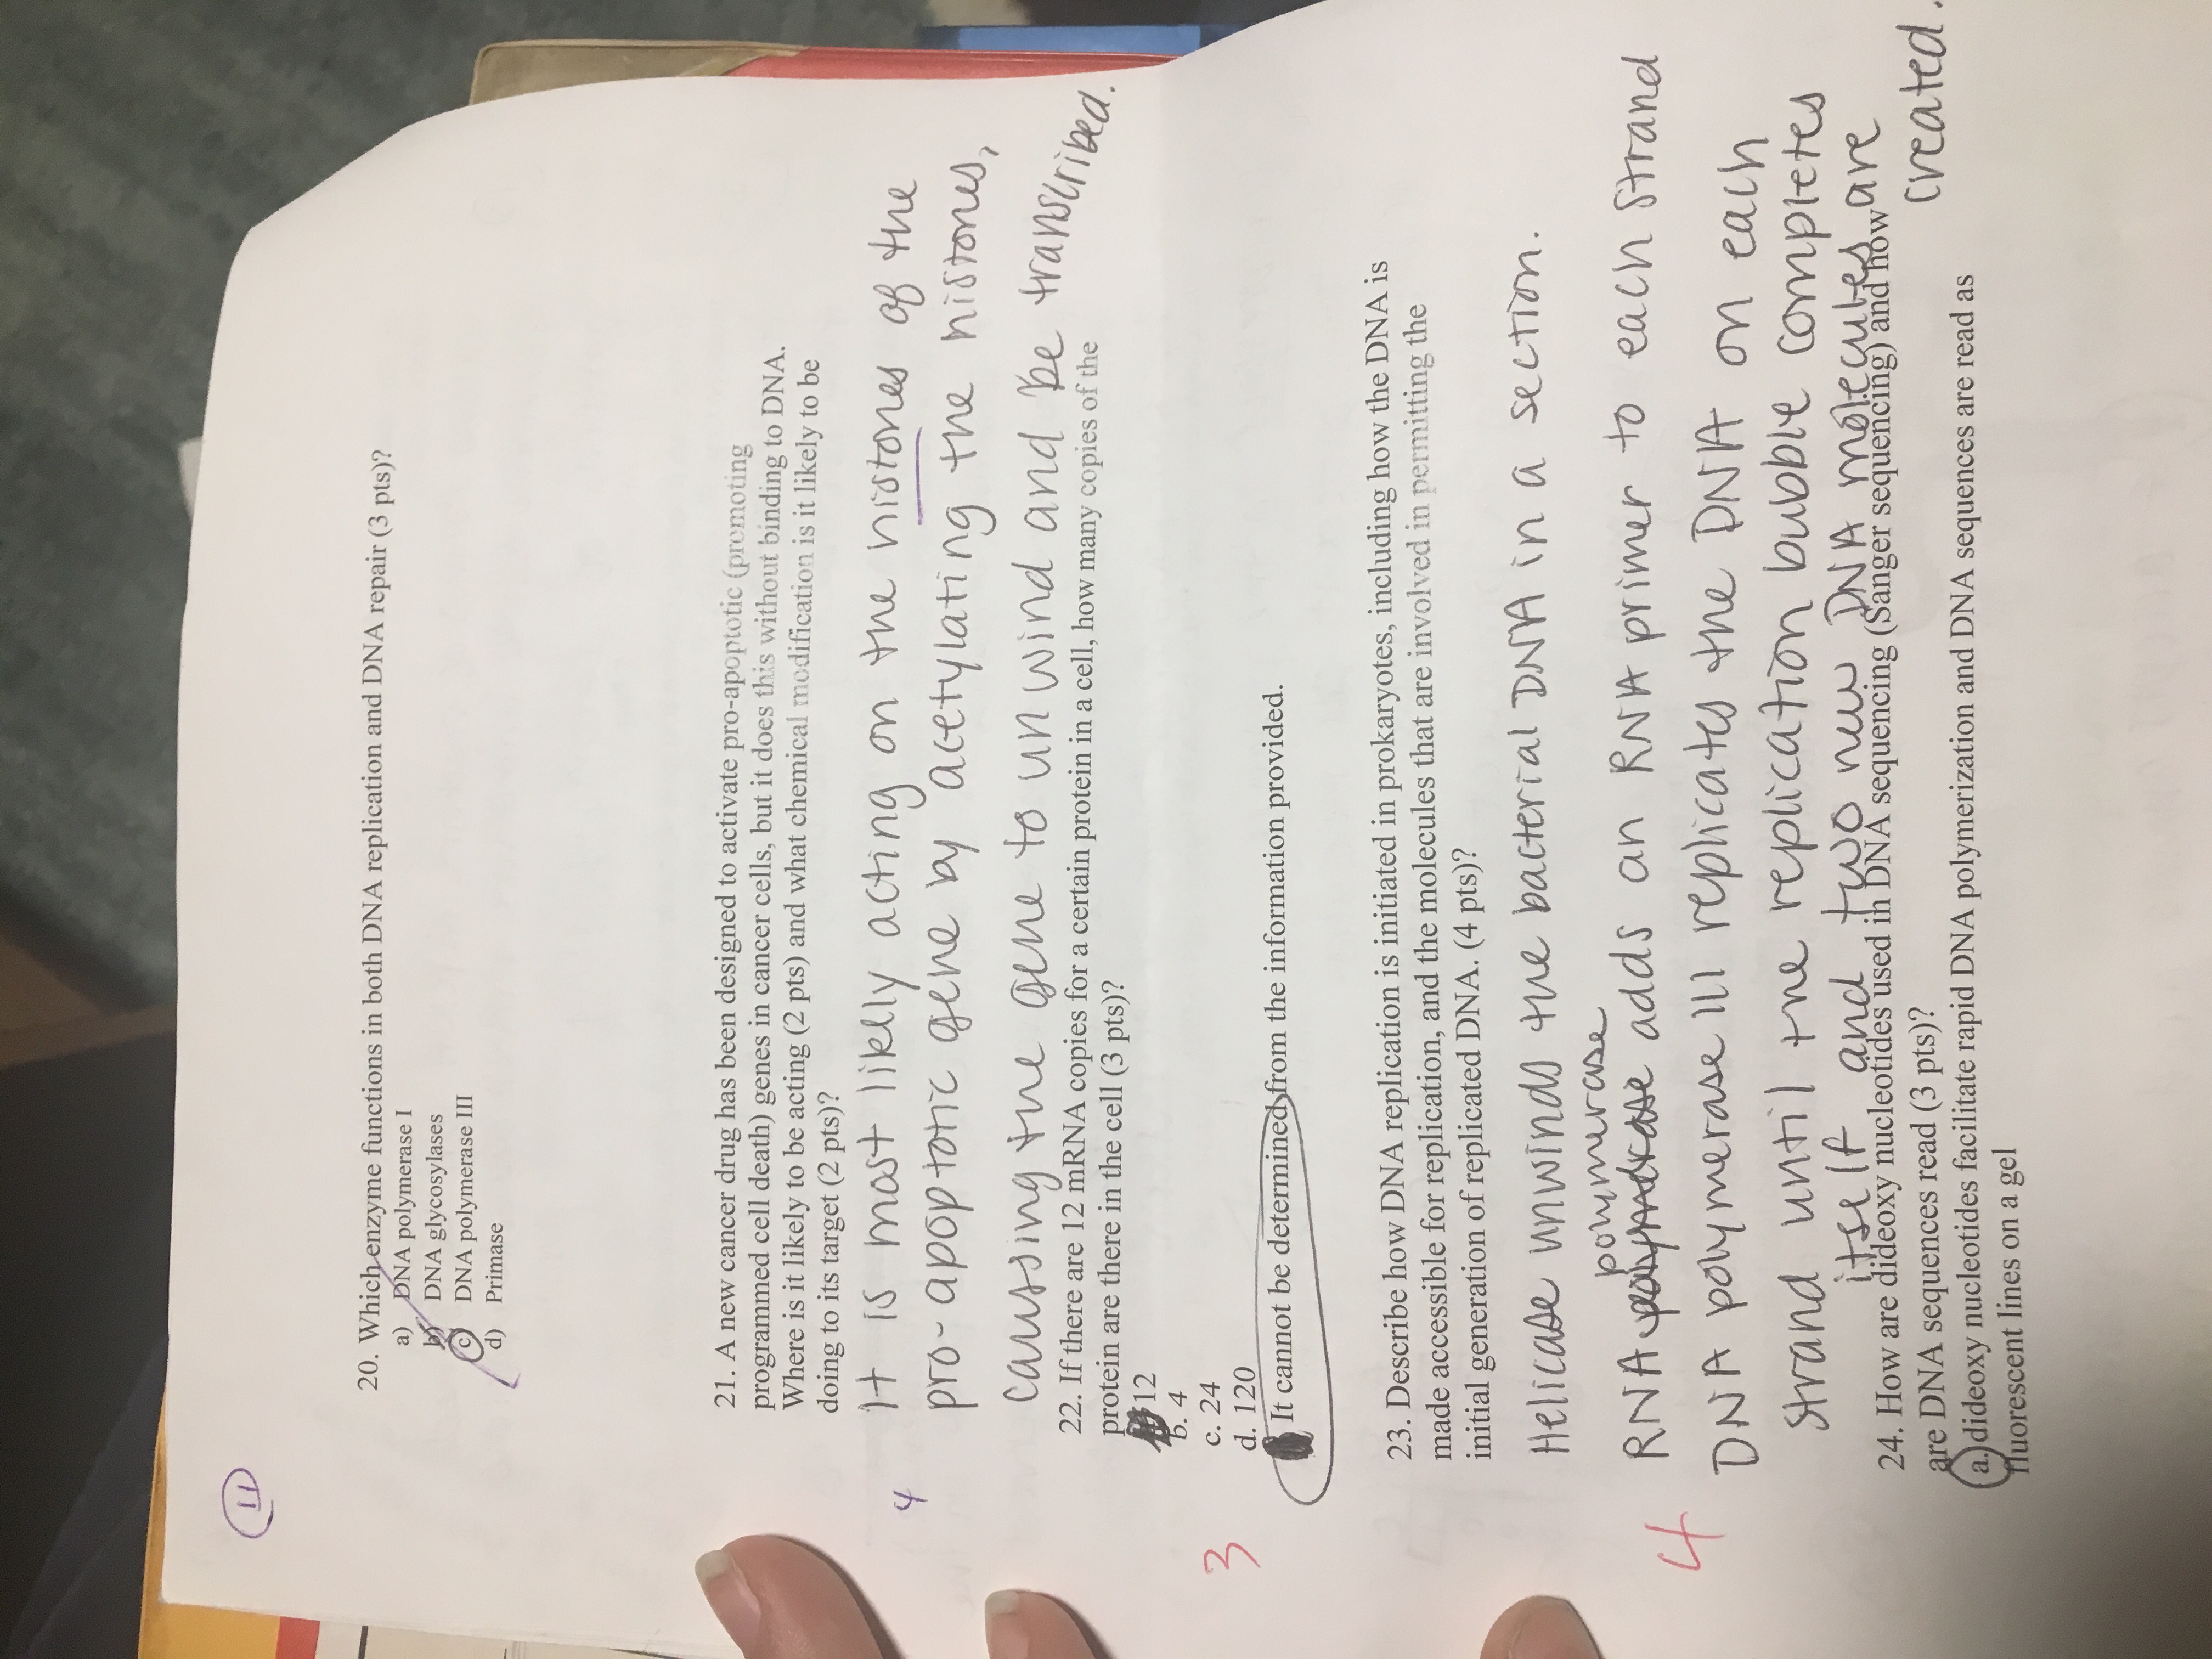 11
20. Which enzyme functions in both DNA replication and DNA repair (3 pts)?
a) DNA polymerase I
b) DNA glycosylases
c) DNA polymerase III
d) Primase
21. A new cancer drug has been designed to activate pro-apoptotic (promoting
programmed cell death) genes in cancer cells, but it does this without binding to DNA.
Where is it likely to be acting (2 pts) and what chemical modification is it likely to be
doing to its target (2 pts)?
It is most likely acting on the histones of the
4
pro-apoptotic gene by acetylating the histones,
caussing the gene to unwind and be transcribed.
22. If there are 12 mRNA copies for a certain protein in a cell, how many copies of the
protein are there in the cell (3 pts)?
12
b. 4
c. 24
3
d. 120
It cannot be determined from the information provided.
23. Describe how DNA replication is initiated in prokaryotes, including how the DNA is
made accessible for replication, and the molecules that are involved in permitting the
initial generation of replicated DNA. (4 pts)?
Helicase unwinds the bacterial DNA in a section.
polymerase
RNA polymerase adds an RNA primer to each strand
4
DNA polymerase III replicates the DNA on each
strand until the replication bubble completes
itself and two new DNA molecules are
created.
24. How are dideoxy nucleotides used in DNA sequencing (Sanger sequencing) and how
are DNA sequences read (3 pts)?
a. dideoxy nucleotides facilitate rapid DNA polymerization and DNA sequences are read as
fluorescent lines on a gel